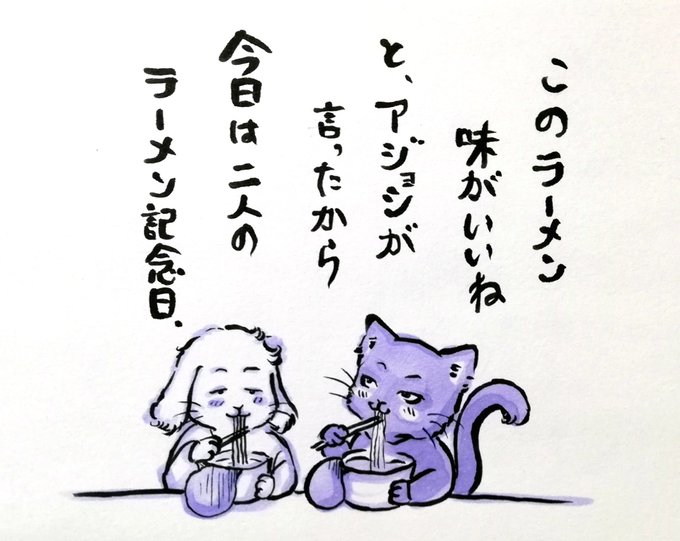 このラーメン
味がいいね
と、アジョシが
言ったから
今日は二人の
ラーメン記念日.